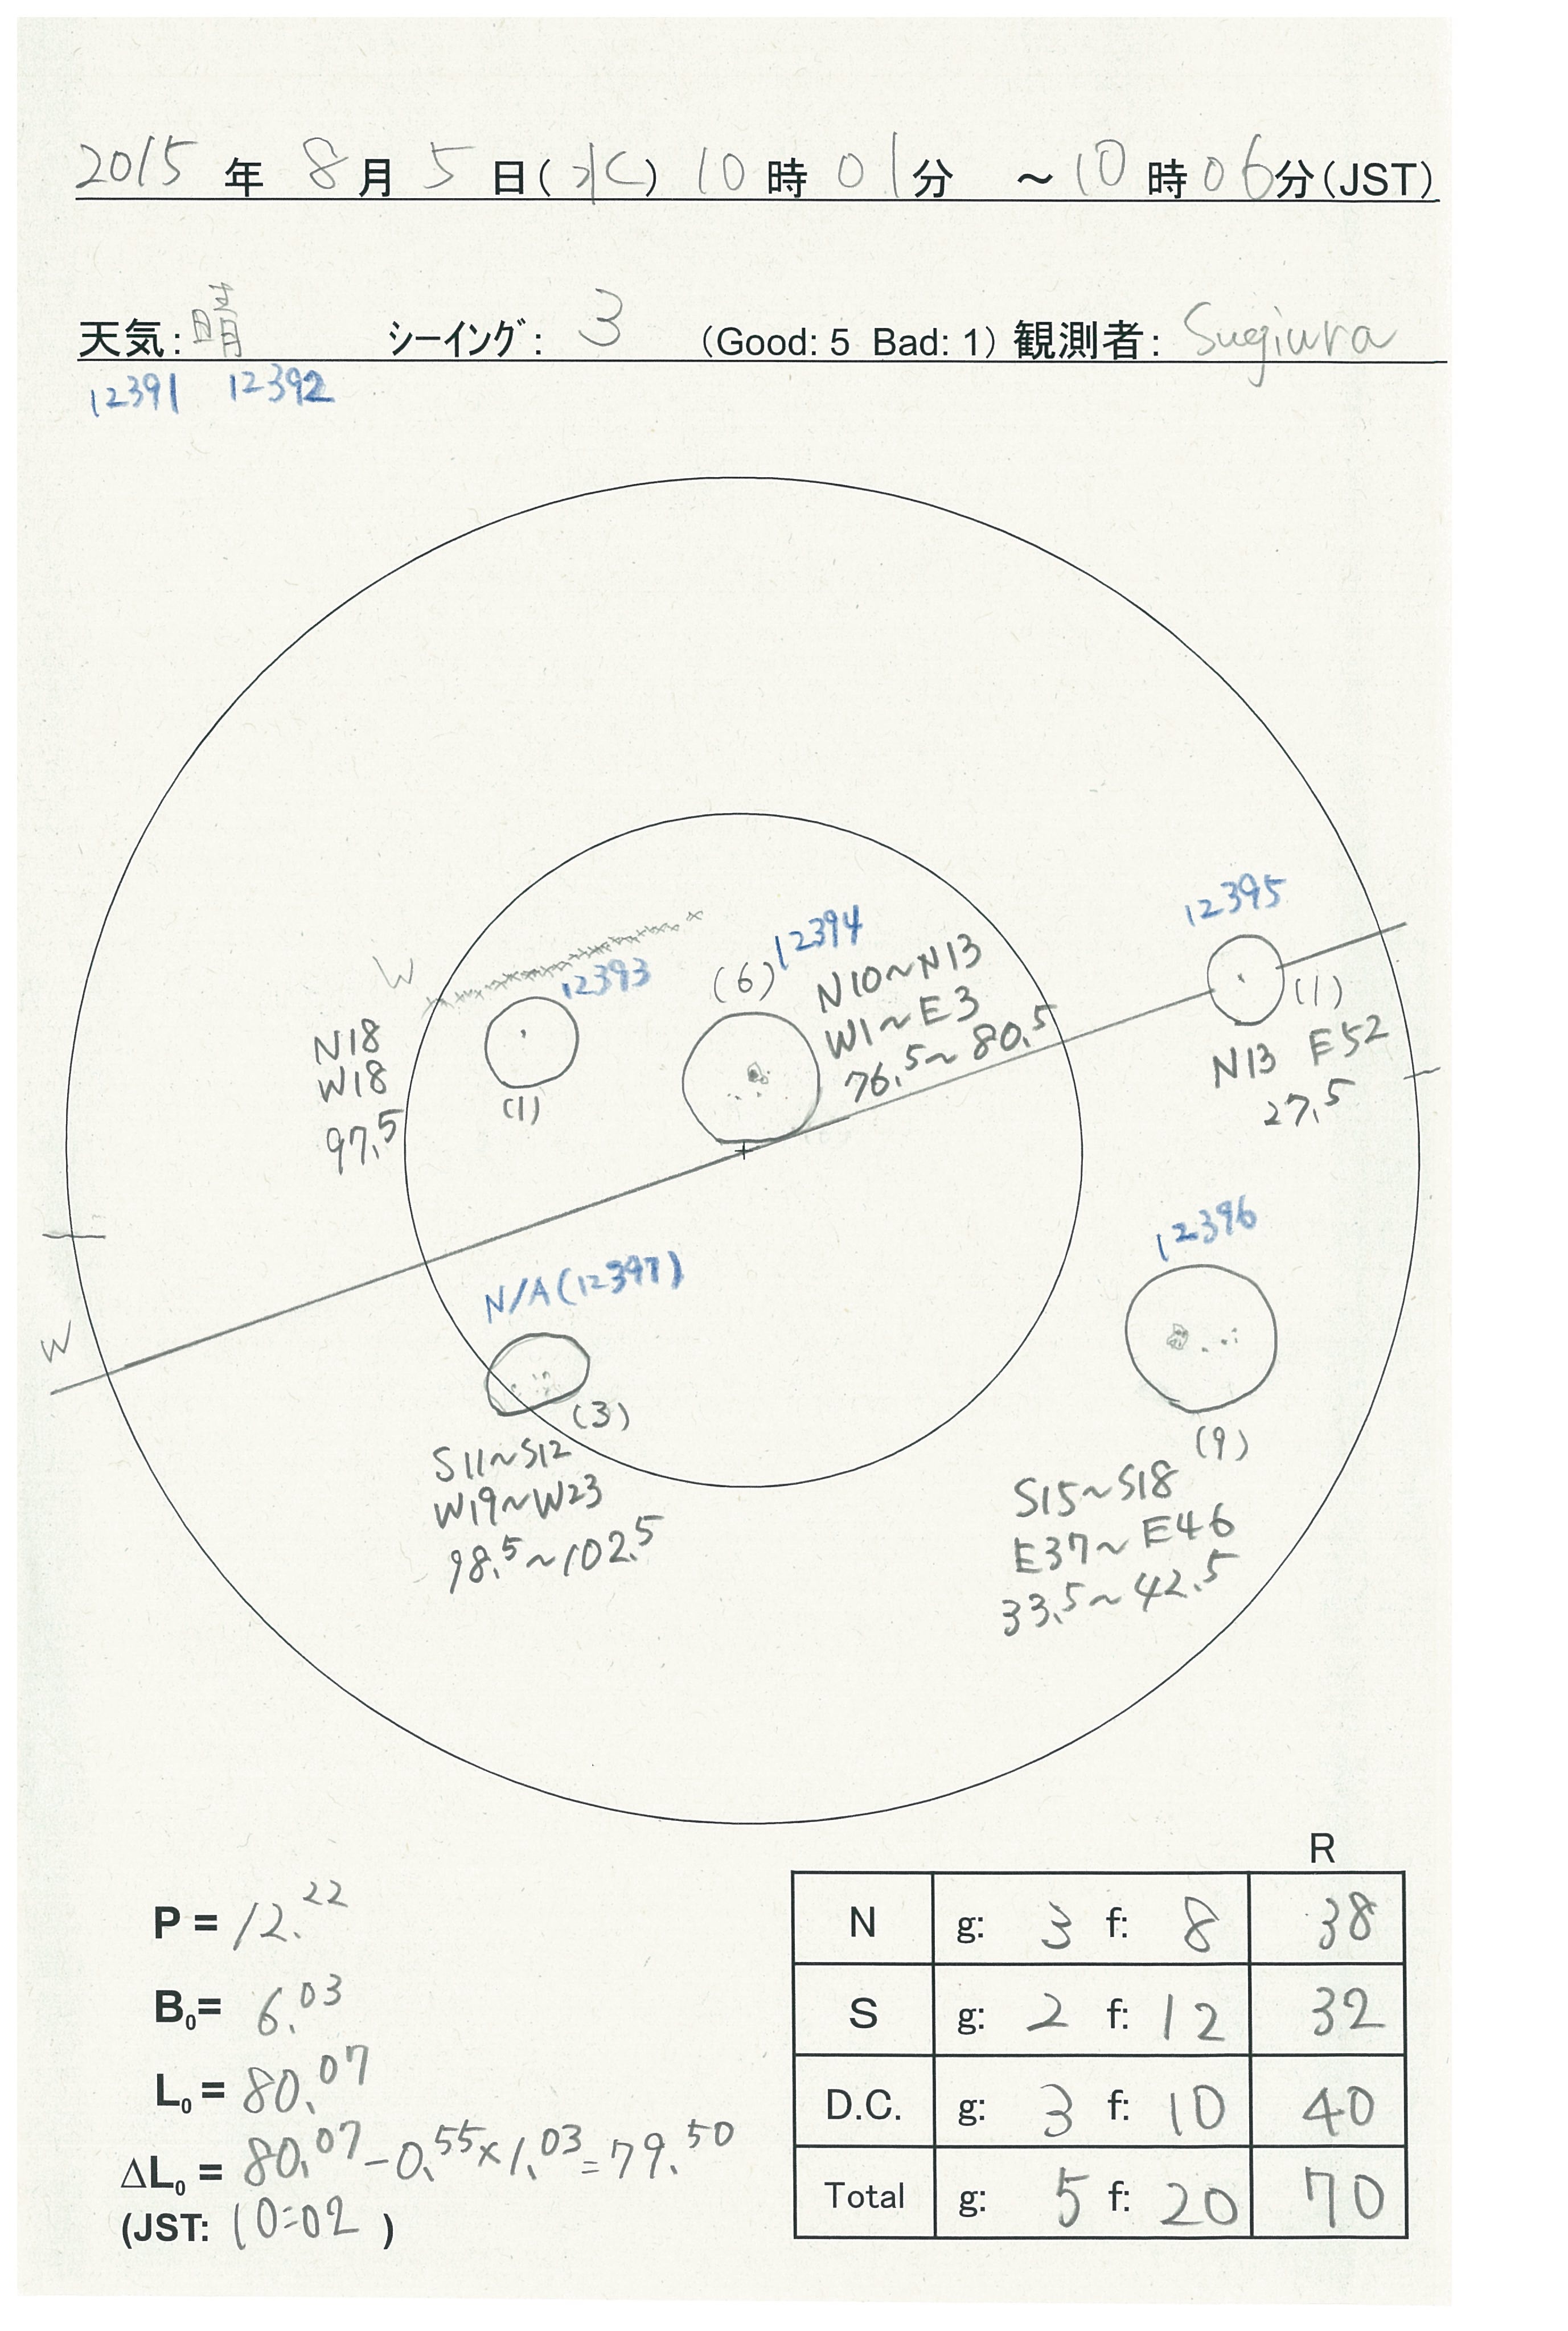 2015 年 8 月 5 日(水) 10 時 01 分 ～ 10 時 06 分(JST)
天気: 晴 シーイング: 3 (Good: 5 Bad: 1) 観測者: Sugiura
12391 12392
12395
12394
(6)
N10~N13
W1~E3
76.5~80.5
W
12393
N18
W18
97.5
(1)
(1)
N13 E52
27.5
12396
N/A(12397)
W
(3)
S11~S12
W19~W23
98.5~102.5
(9)
S15~S18
E37~E46
33.5~42.5
P = 12.22
B0= 6.03
L0 = 80.07
ΔL0 = 80.07-0.55×1.03=79.50
(JST: 10:02 )
R
N g: 3 f: 8 38
S g: 2 f: 12 32
D.C. g: 3 f: 10 40
Total g: 5 f: 20 70